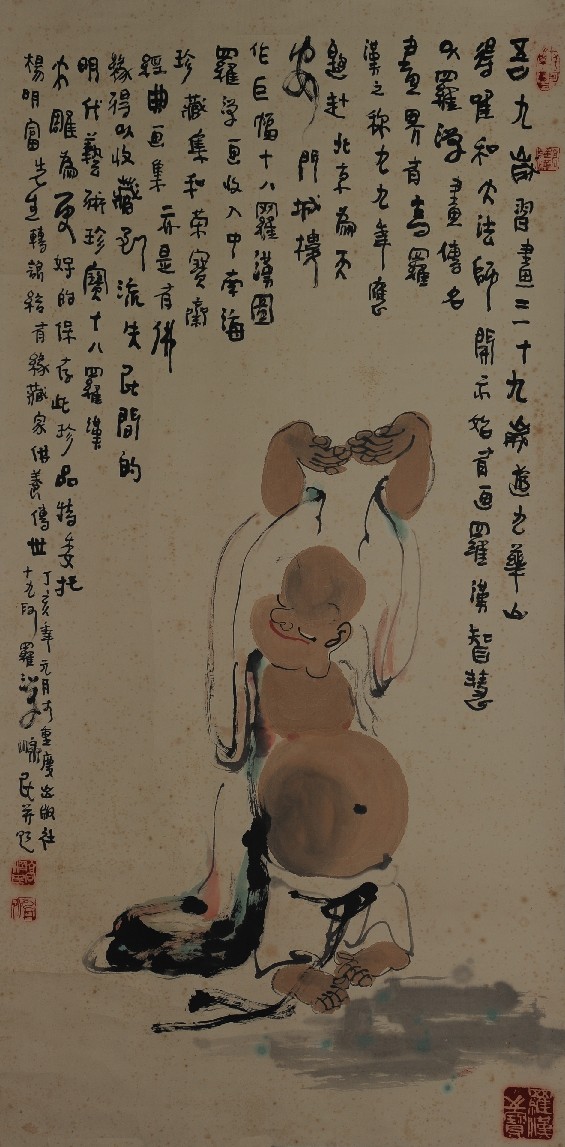 吾九歲習畫二十九歲遊九華山
得唯和大法師開示始有画羅漢智慧
以羅漢畫傳名
畫界有高羅
漢之称九九年應
邀赴北京為天
安門城樓
作巨幅十八羅漢圖
羅漢画收入中南海
珍藏集和榮寶齋
經典画集亦是有佛
緣得以收藏到流失民間的
明代藝術珍寶十八羅漢
木雕為更好的保存此珍品特委托
楊明富先生轉讓給有緣藏家供養傳世
丁亥年元月于重慶出版社
羅漢